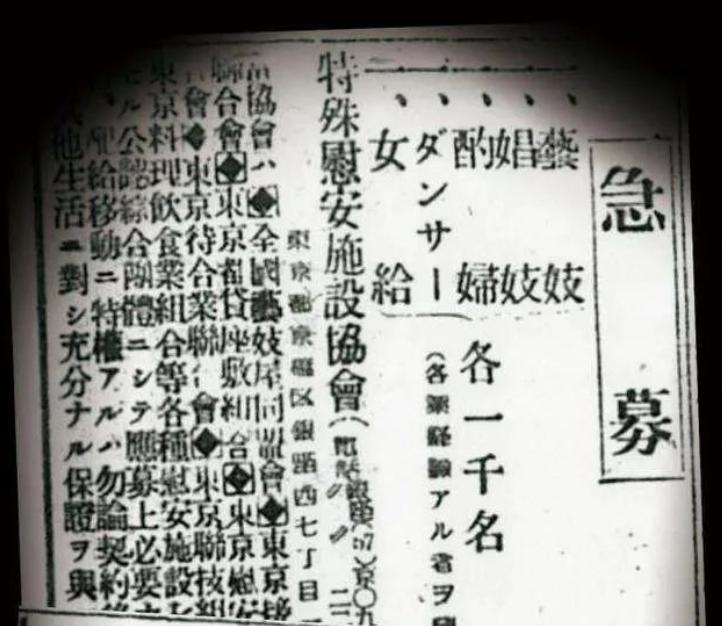 急募
一、藝妓
、娼妓
、酌婦 各一千名
、ダンサー (各業経験アル者ヲ
一、女給
特殊慰安施設協會(電話銀座(57)
東京都京橋区銀座西七丁目一
協會ハ◆全國藝妓屋同盟會◆東京接
聯合會◆東京都貸座敷組合◆東京慰安
會◆東京待合業聯合會◆東京聯技組
東京料理飲食業組合等各種慰安施設
ル公認綜合團體ニシテ應募上必要
、配給移動ニ特權アルハ勿論契約
他生活ニ對シ充分ナル保證ヲ與